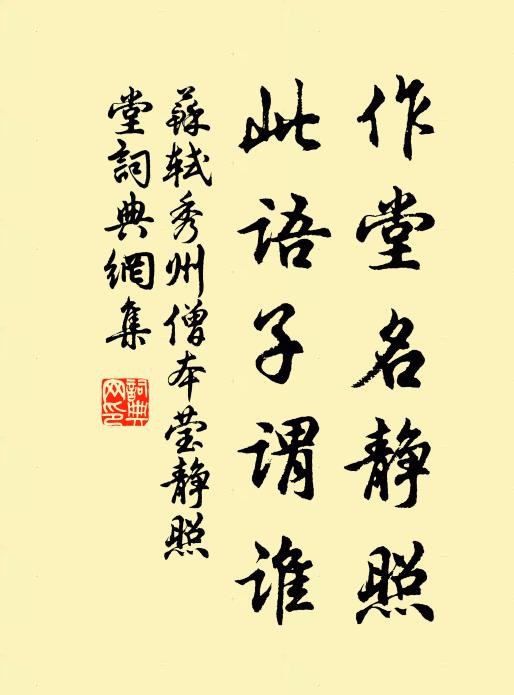 作堂名静照
此語子謂誰
蘇軾秀州僧本莹静照
堂詞典網集
詞典
网印